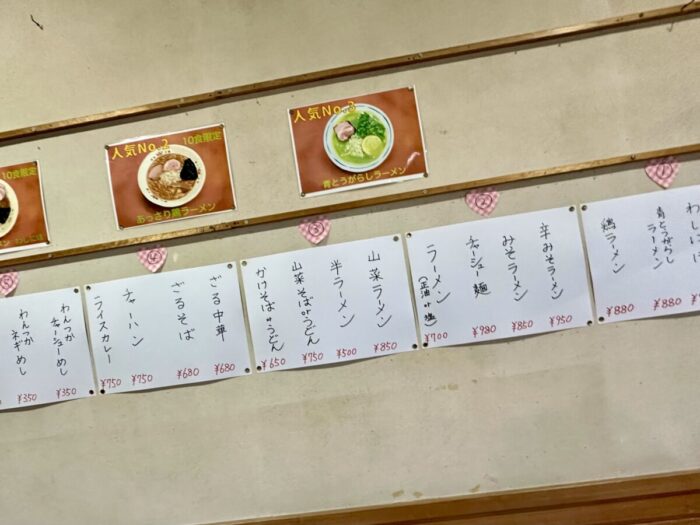 人気No.3
青とうがらしラーメン
人気No.2
10食限定
あっさり鶏ラーメン
10食限定
ラーメン
①
青とうがらし
ラーメン
¥880
鶏ラーメン
¥880
②
辛みそラーメン
¥950
みそラーメン
¥850
チャーシュー麺
¥980
ラーメン
(正油or塩)
¥700
③
山菜ラーメン
¥850
半ラーメン
¥500
山菜そばorうどん
¥750
かけそばorうどん
¥650
ざる中華
¥680
ざるそば
¥680
チャーハン
¥750
ライスカレー
¥750
わんつか
チャーシューめし
¥350
わんつか
ネギめし
¥350